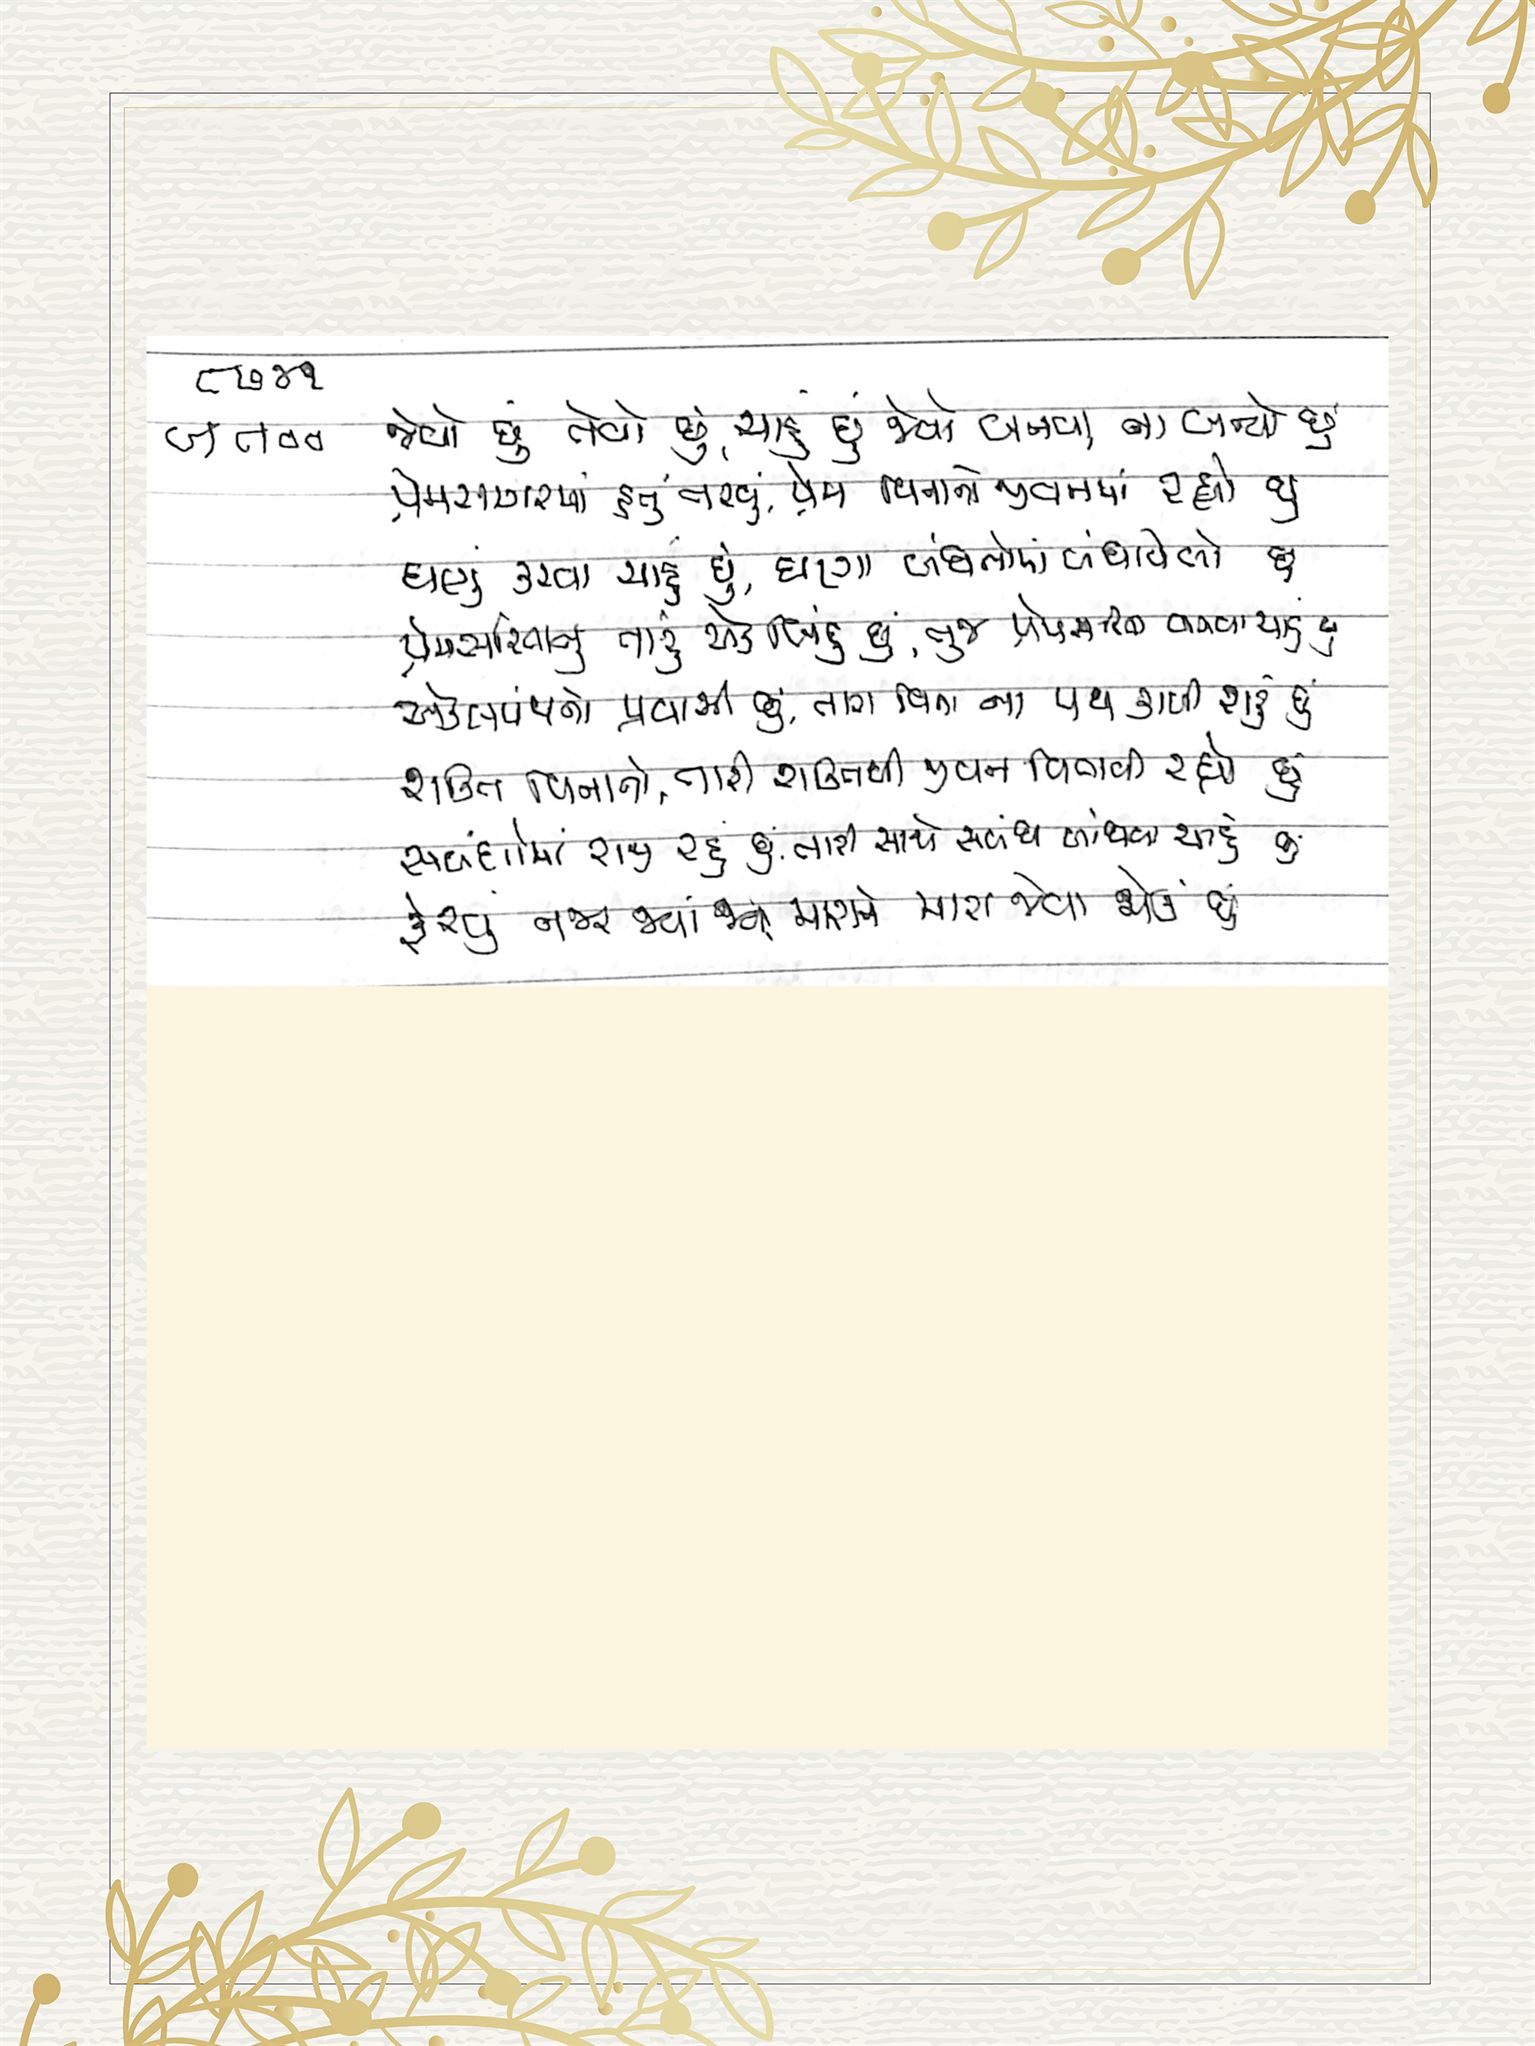 ૮૭૪૧
જેવો છું તેવો છું, ચાહું છું જેવો બનવા, ના બન્યો છું
પ્રેમસાગરમાં હતું તરવું, પ્રેમ વિનાનો જીવનમાં રહ્યો છું
ઘણું કરવા ચાહું છું, ઘણા બંધનોમાં બંધાયેલો છું
તારું એક બિંદુ છું, તુજ બનવા ચાહું છું
પ્રવાસી છું, તારા વિના ના પથ કાપી શકું છું
શક્તિ વિનાનો, તારી શક્તિથી જીવન વિતાવી રહ્યો છું
સબંધોમાં રાજી રહું છું. તારી સાથે સબંધ બાંધવા ચાહું છું
ફેરવું નજર જ્યાં મારા જેવા જોઉં છું